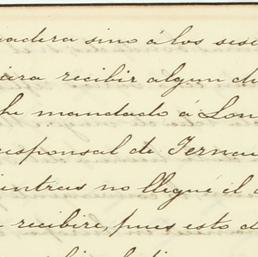 adera sino á los ses
ara recibir algun di
he mandado á Lon
responsal de Fernan
ientras no llegué el d
recibire, pues esto d